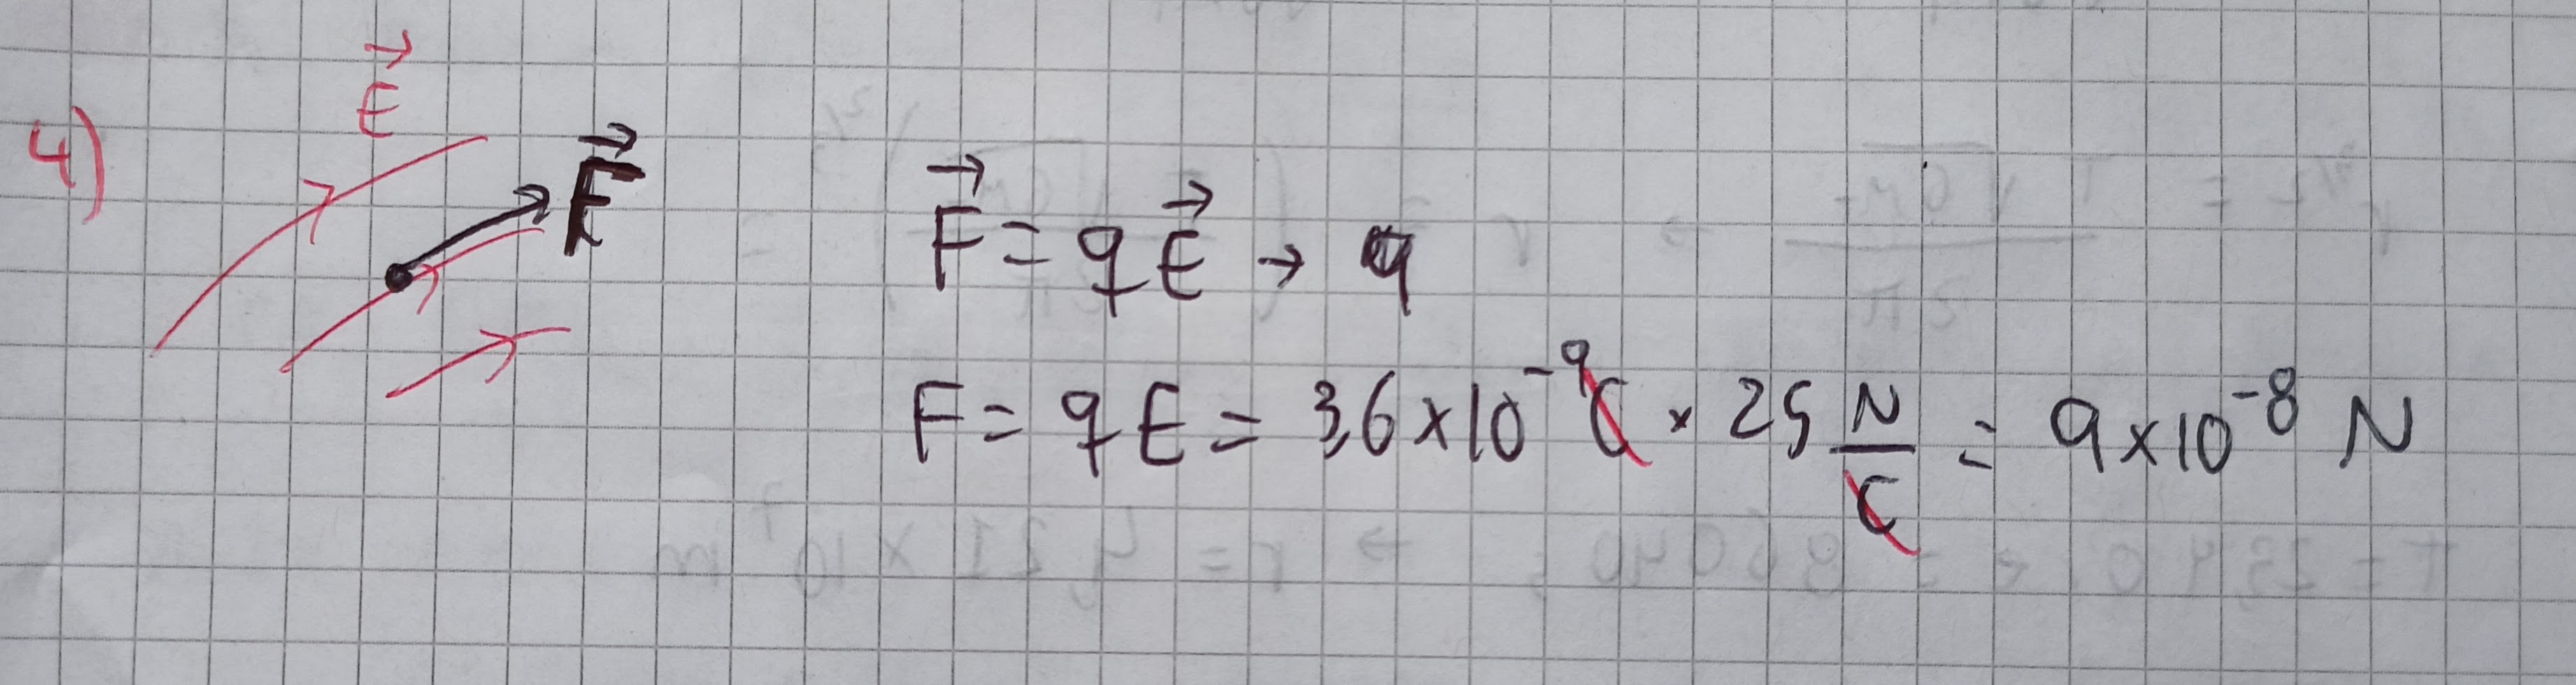 4)
E⃗
F⃗
F⃗ = qE⃗ → q
F = qE = 3,6 × 10⁻⁹ C × 25 N/C = 9 × 10⁻⁸ N